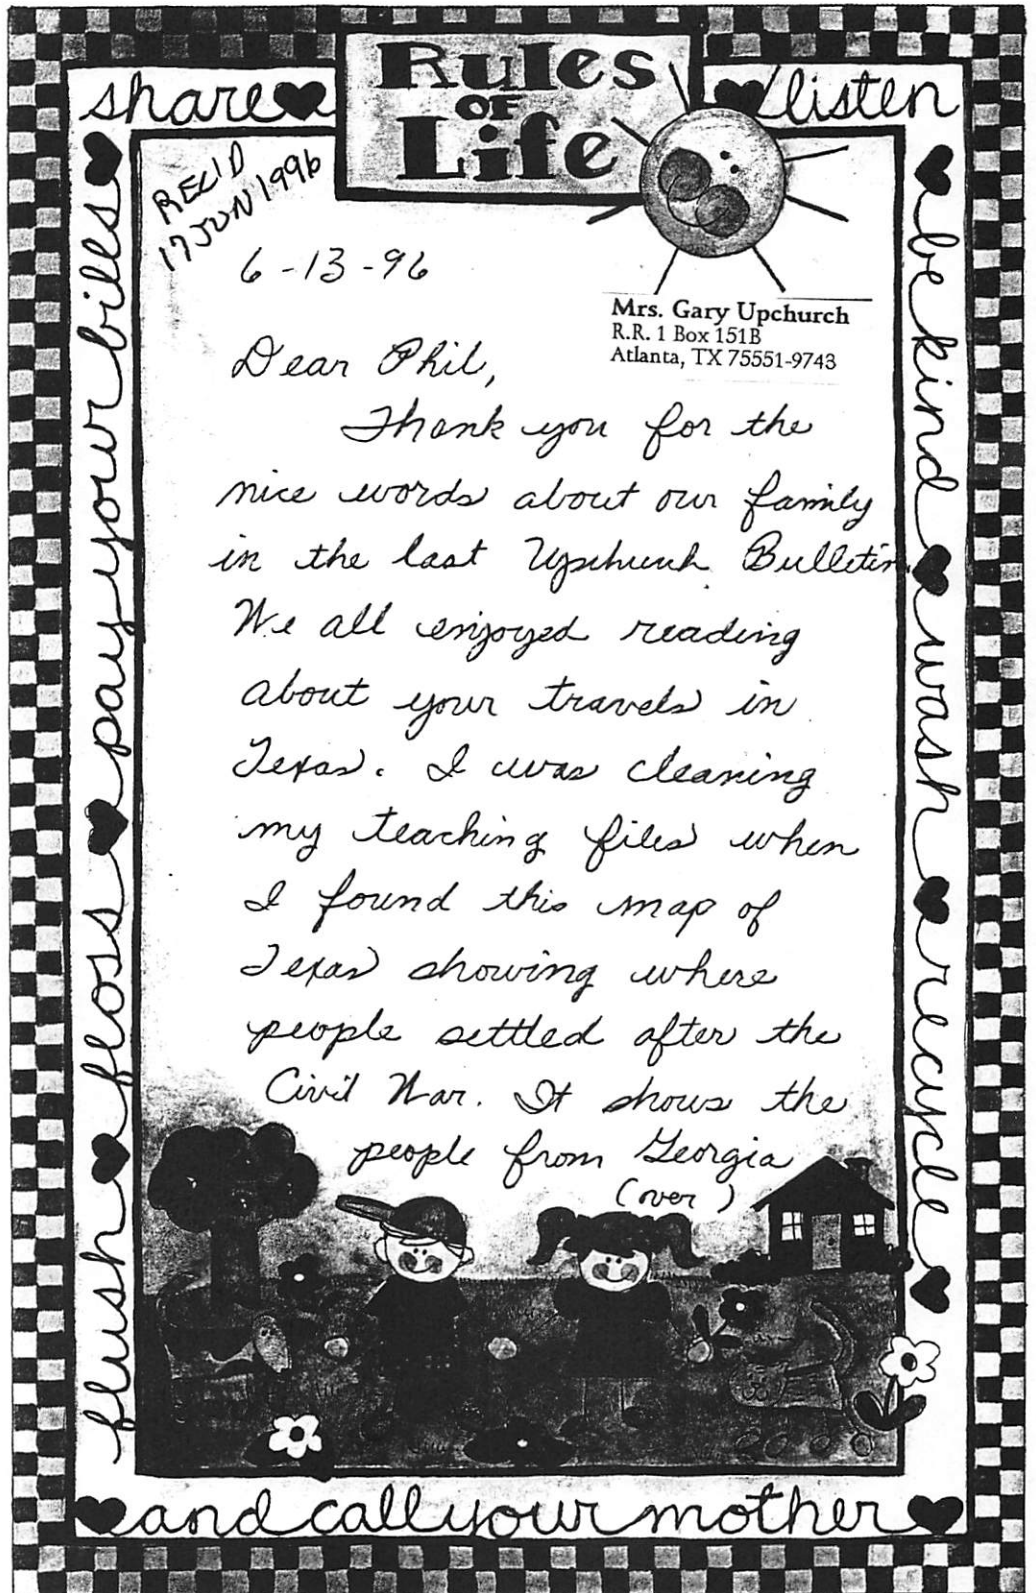 Rules
OF
Life
share
listen
be kind
wash
recycle
flush
floss
pay your bills
and call your mother
REC'D
17 JUN 1996
6-13-96
Mrs. Gary Upchurch
R.R. 1 Box 151B
Atlanta, TX 75551-9743
Dear Phil,
Thank you for the
nice words about our family
in the last Upchurch Bulletin.
We all enjoyed reading
about your travels in
Texas. I was cleaning
my teaching files when
I found this map of
Texas showing where
people settled after the
Civil War. It shows the
people from Georgia
(over)